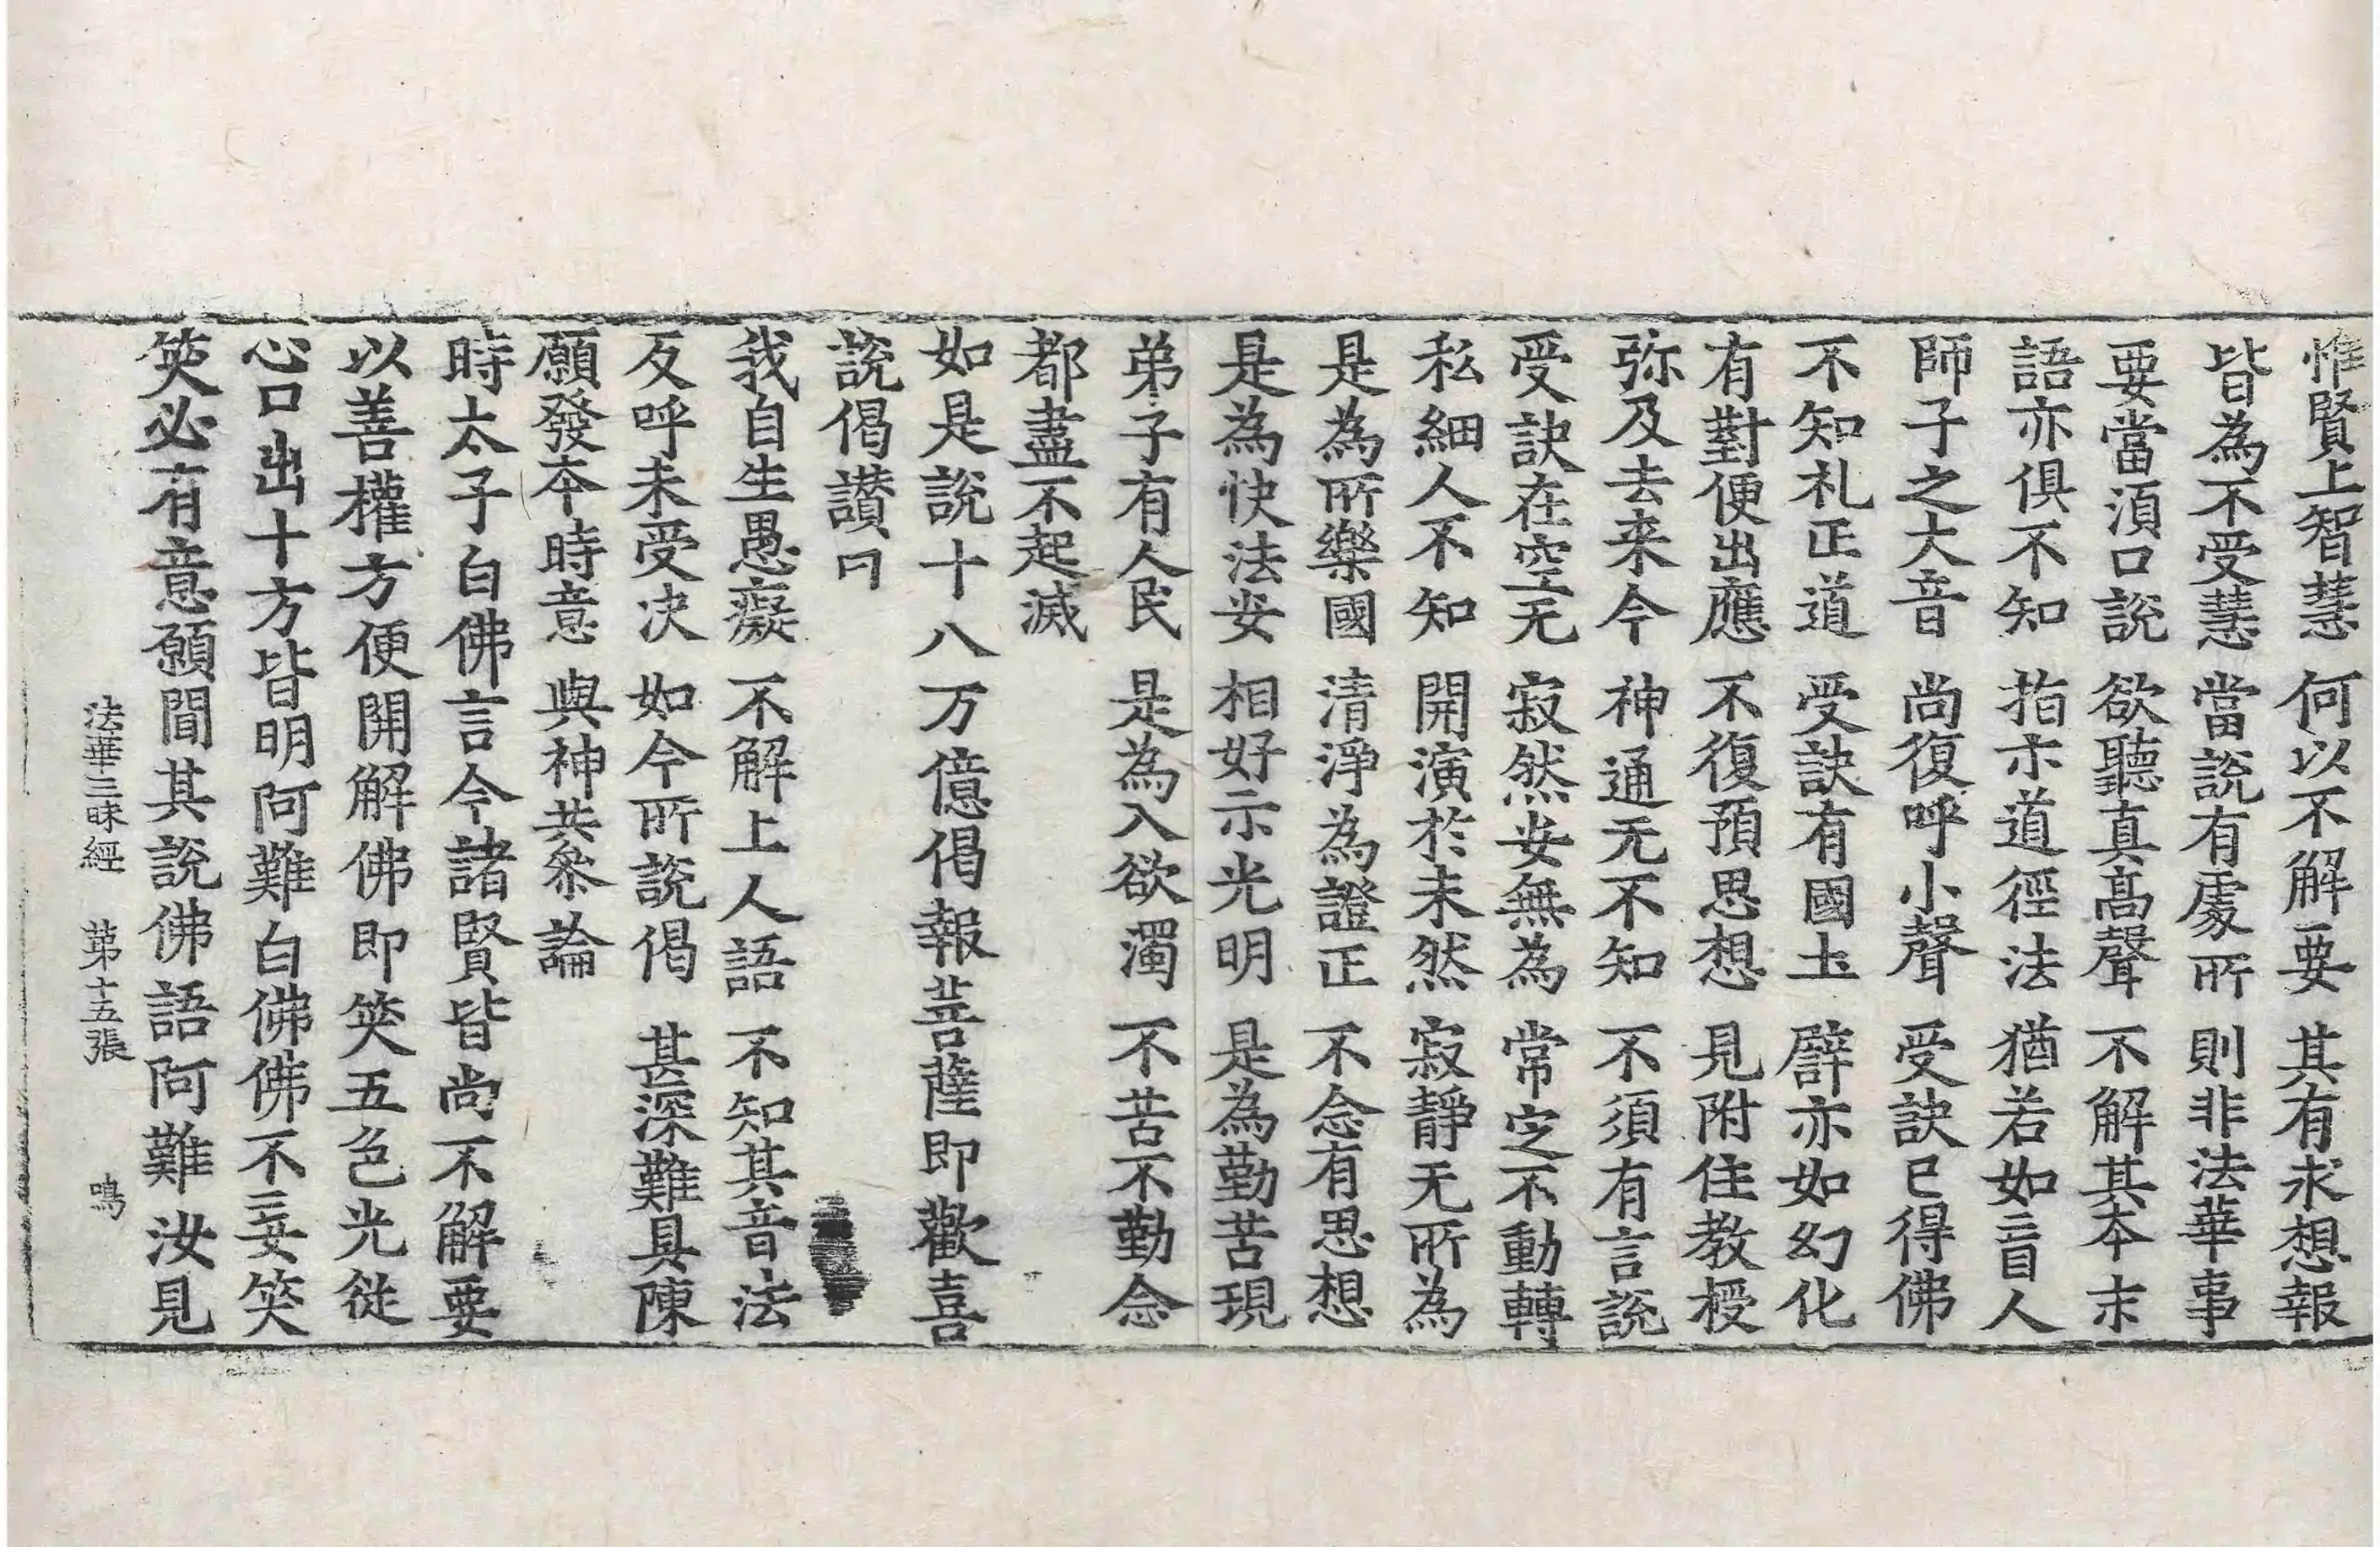 惟賢上智慧　何以不解要　其有求想報
皆為不受慧　當說有處所　則非法華事
要當湏口說　欲聽真髙聲　不解其本末
語亦俱不知　指示道徑法　猶若如盲人
師子之大音　尚復呼小聲　受訣已得佛
不知礼正道　受訣有國土　譬亦如幻化
有對便出應　不復預思想　見附住教授
弥及去来今　神通无不知　不須有言說
受訣在空无　寂然安無為　常定不動轉
私細人不知　開演於未然　寂靜无所為
是為所樂國　清淨為證正　不念有思想
是為快法安　相好示光明　是為勤苦現
弟子有人民　是為入欲濁　不苦不勤念
都盡不起滅
如是說十八万億偈報菩薩即歡喜
說偈讃曰
我自生愚癡　不解上人語　不知其音法
反呼未受决　如今所說偈　甚深難具陳
願發本時意　與神共叅論
時太子白佛言今諸賢皆尚不解要
以善權方便開解佛即笑五色光従
心口出十方皆明阿難白佛佛不妄笑
笑必有意願聞其說佛語阿難汝見
法華三昧經　第十五張　鳴